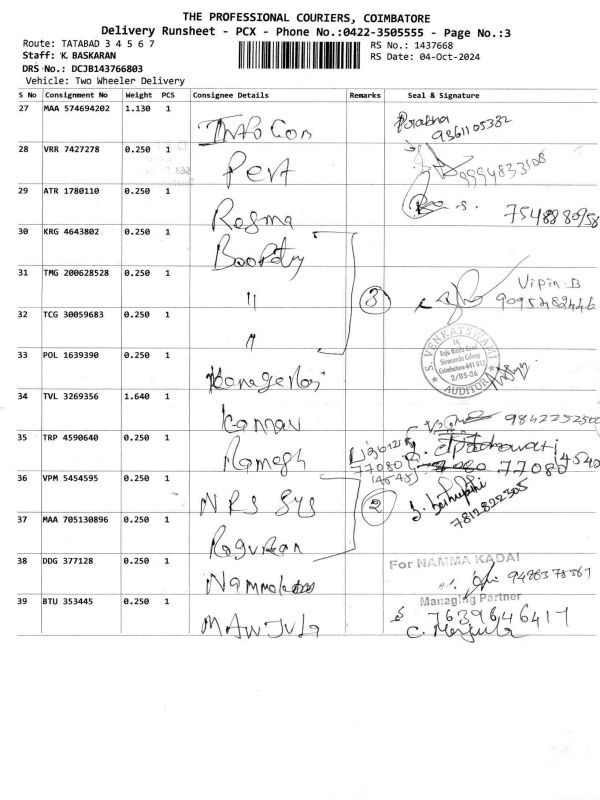 THE PROFESSIONAL COURIERS, COIMBATORE
Delivery Runsheet - PCX - Phone No.:0422-3505555 - Page No.:3
Route: TATABAD 3 4 5 6 7
RS No.: 1437668
Staff: K. BASKARAN
RS Date: 04-Oct-2024
DRS No.: DCJB143766803
Vehicle: Two Wheeler Delivery
S No Consignment No Weight PCS Consignee Details Remarks Seal & Signature
27 MAA 574694202 1.130 1
Info Con
9361105382
28 VRR 7427278 0.250 1
9994833108
29 ATR 1780110 0.250 1
Rosma
7548880958
30 KRG 4643802 0.250 1
31 TMG 200628528 0.250 1
"
3
Vipin.B
9095482446
32 TCG 30059683 0.250 1
"
S. VENKATSWAMI
Sivananda Colony
Coimbatore-641 012
AUDITOR
33 POL 1639390 0.250 1
34 TVL 3269356 1.640 1
Kannan
9842252500
35 TRP 4590640 0.250 1
Ramesh
77080
77080 4540
36 VPM 5454595 0.250 1
NRS SYS
2
7812822305
37 MAA 705130896 0.250 1
38 DDG 377128 0.250 1
For NAMMA KADAI
Managing Partner
39 BTU 353445 0.250 1
MANJULA
7639646417
C. Manjula